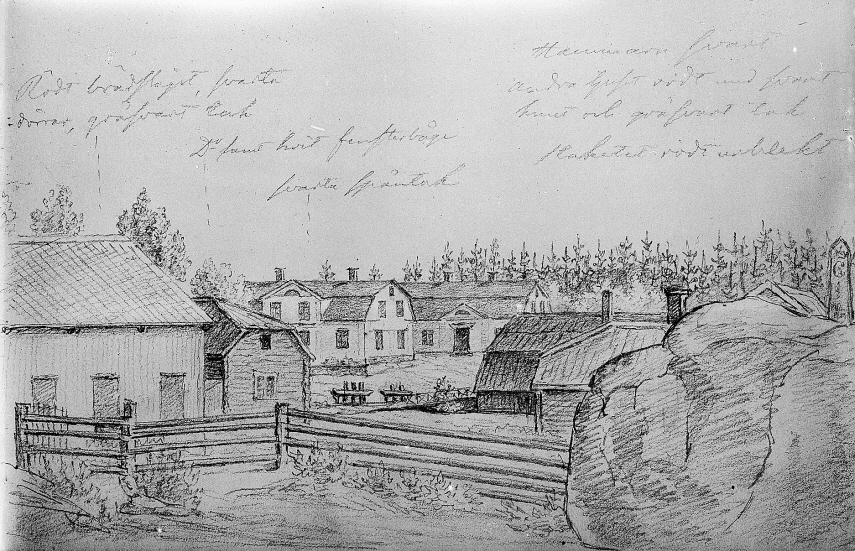 Rödt brädslaget, svarta
dörrar, gråsvart tak
Do samt hvit fensterbåge
svarta spåntak
Hammaren svart
andra huset rödt med svart
och gråsvart tak
Staketet rödt urblekt
G